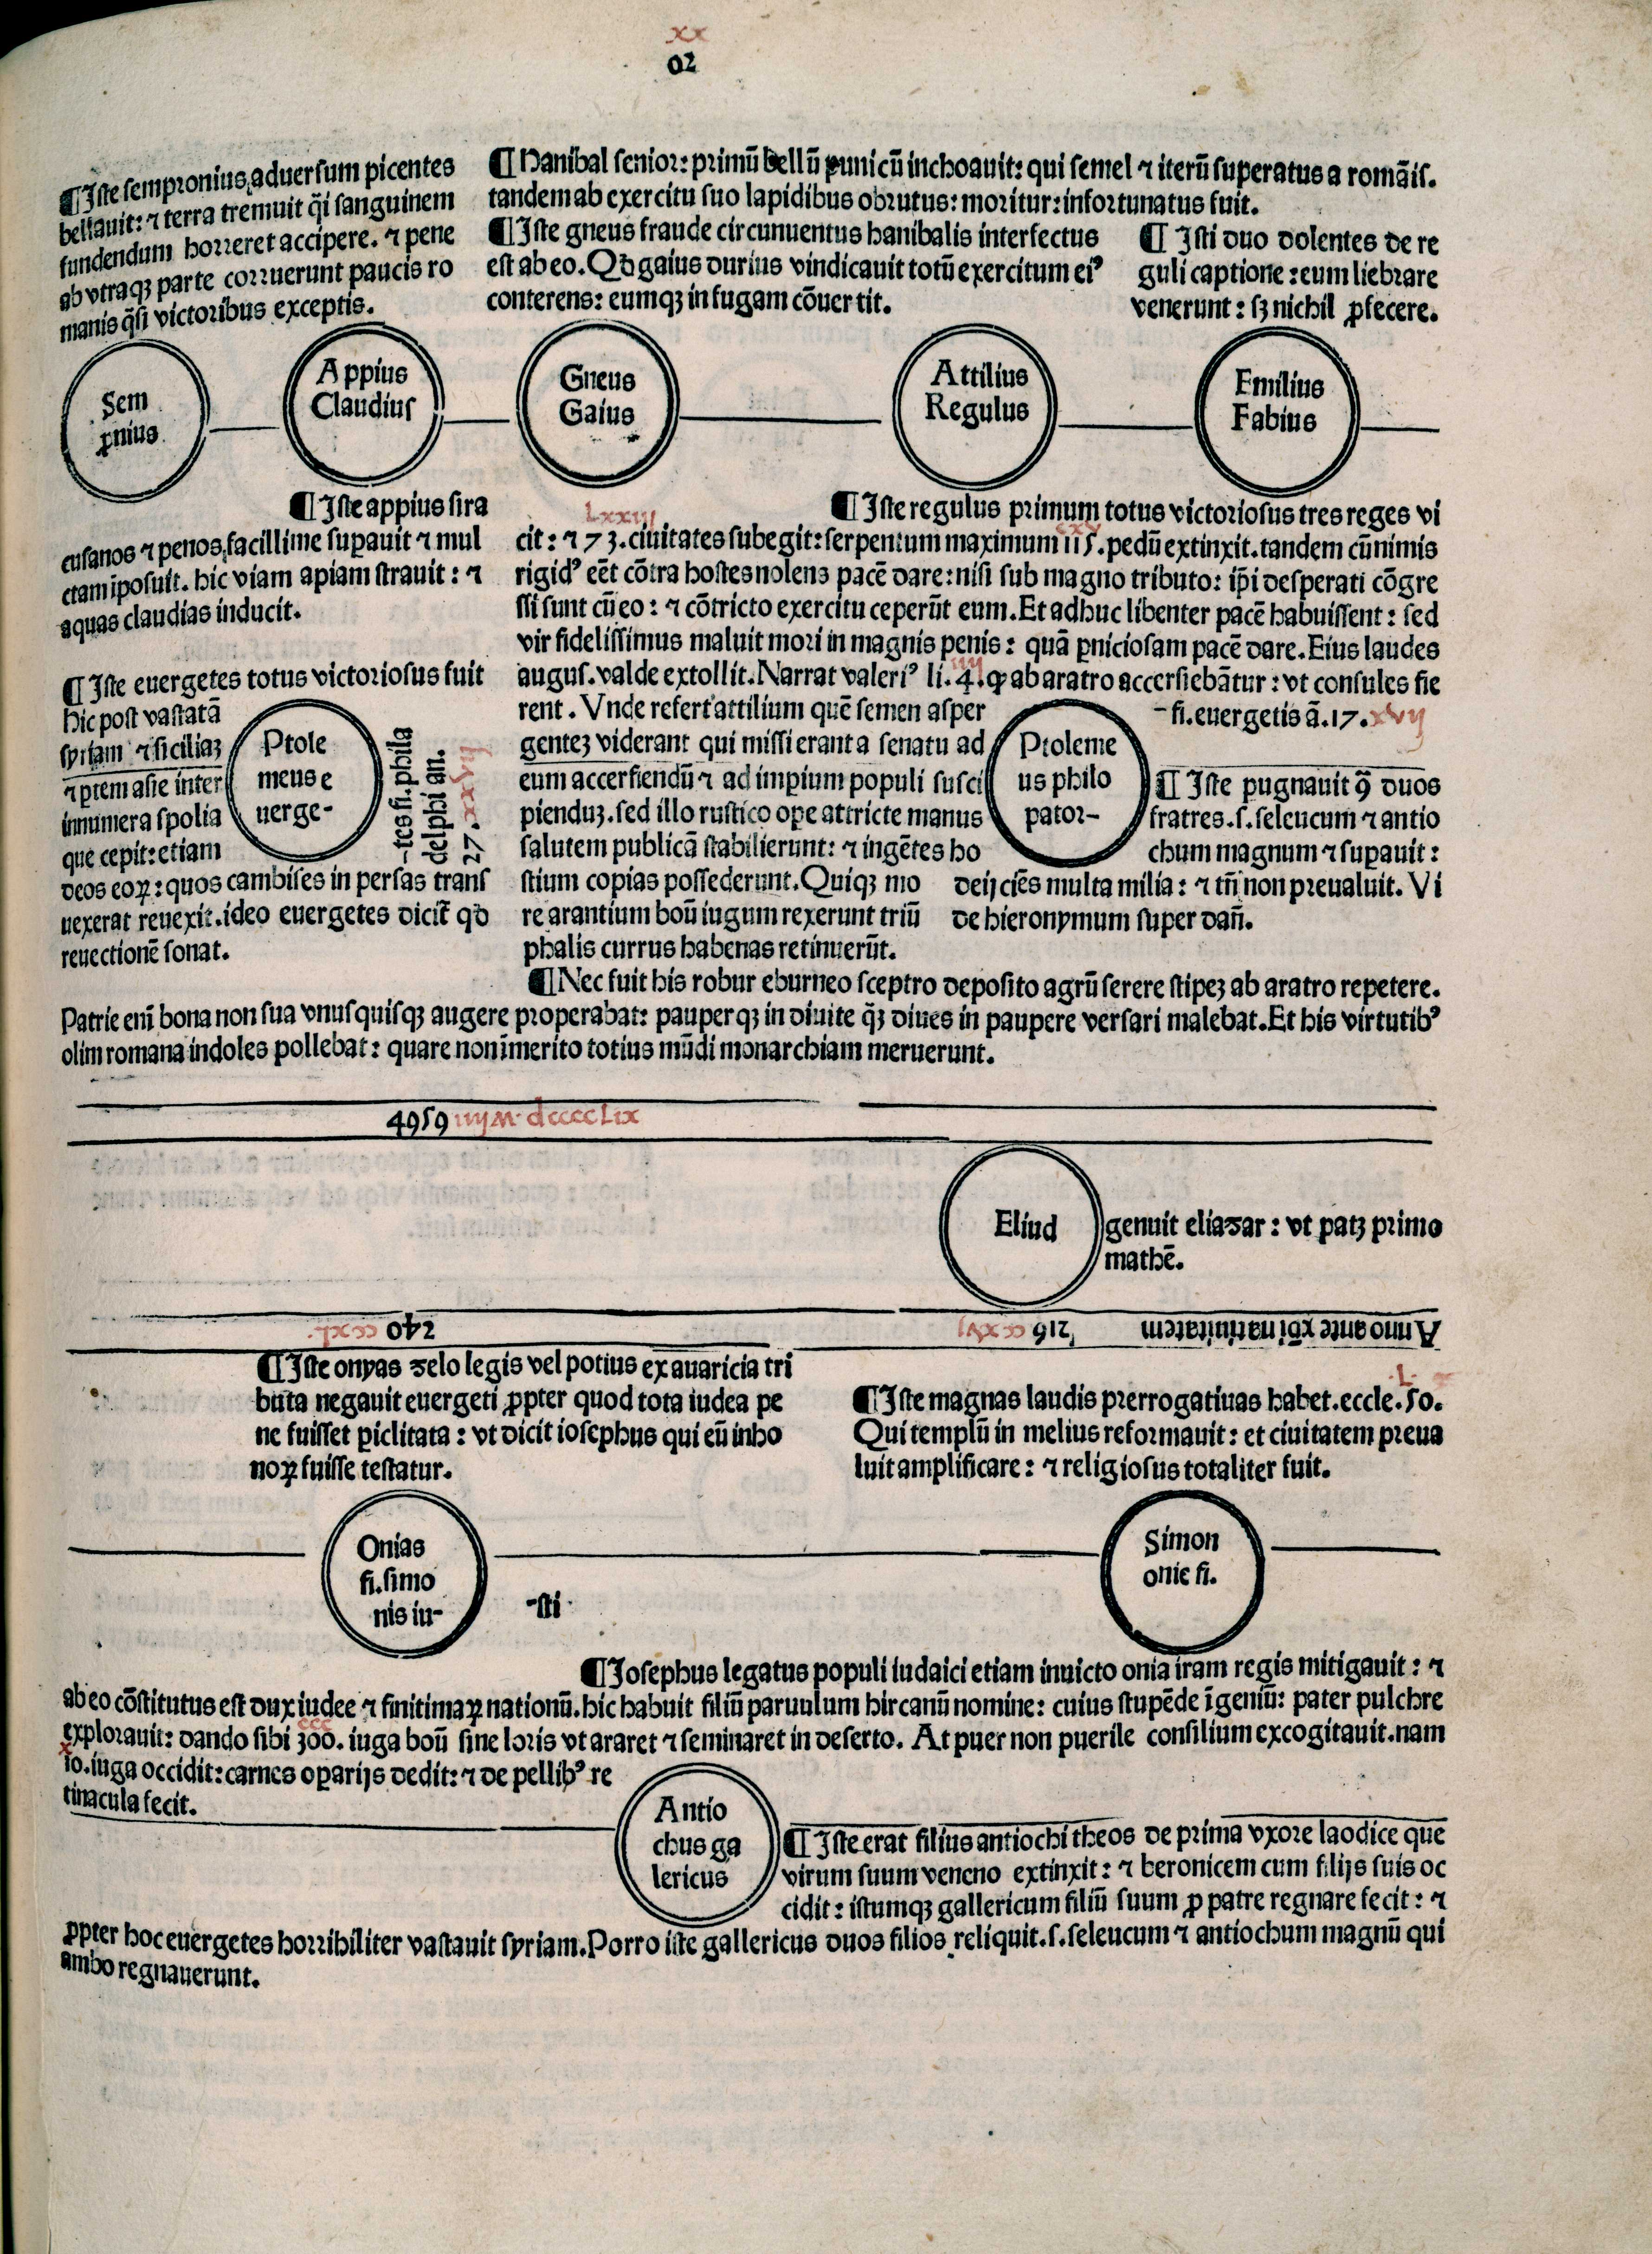 xx
02
¶Iste sempronius aduersum picentes
bellauit: ⁊ terra tremuit q̄si sanguinem
fundendum horreret accipere. ⁊ pene
ab vtraqꝫ parte corruerunt paucis ro
manis q̄si victoribus exceptis.
¶Hanibal senior: primū bellū punicū inchoauit: qui semel ⁊ iterū superatus a romāis.
tandem ab exercitu suo lapidibus obrutus: moritur: infortunatus fuit.
¶Iste gneus fraude circunuentus hanibalis interfectus
est ab eo. Qđ gaius durius vindicauit totū exercitum eiꝰ
conterens: eumqꝫ in fugam cōuertit.
¶ Isti duo dolentes de re
guli captione: eum liebrare
venerunt: sꝫ nichil ꝓfecere.
Sem
ꝓnius
Appius
Claudius
Gneus
Gaius
Attilius
Regulus
Emilius
Fabius
¶Iste appius sira
cusanos ⁊ penos facillime suꝑauit ⁊ mul
ctam īposuit. hic viam apiam strauit: ⁊
aquas claudias inducit.
Lxxiij
¶Iste regulus primum totus victoriosus tres reges vi
cxv
cit: ⁊ 73. ciuitates subegit: serpentum maximum 115. pedū extinxit. tandem cū nimis
rigidꝰ eēt cōtra hostes nolens pacē dare: nisi sub magno tributo: ip̄i desperati cōgre
ssi sunt cū eo: ⁊ cōtricto exercitu ceperūt eum. Et adhuc libenter pacē habuissent: sed
vir fidelissimus maluit mori in magnis penis: quā ꝑniciosam pacē dare. Eius laudes
iiij
augus. valde extollit. Narrat valeriꝰ li. 4. ꝙ ab aratro accersiebātur: vt consules fie
rent. Vnde refert attilium quē semen asper
gentez viderant qui missi erant a senatu ad
eum accersiendū ⁊ ad imꝑium populi susci
pienduꝫ. sed illo rustico oꝑe attricte manus
salutem publicā stabilierunt: ⁊ ingētes ho
stium copias possederunt. Quiqꝫ mo
re arantium boū iugum rexerunt triū
phalis currus habenas retinuerūt.
¶Iste euergetes totus victoriosus fuit
hic post vastatā
syriam ⁊ siciliaꝫ
⁊ ꝑtem asie inter
innumera spolia
que cepit: etiam
deos eoꝝ: quos cambises in persas trans
uexerat reuexit. ideo euergetes dicit̄ qđ
reuectionē sonat.
Ptole
meus e
uerge-
-tes fi. phila
delphi an.
27. xxvij
Ptoleme
us philo
pator-
-fi. euergetis ā. 17. xvij
¶Iste pugnauit ꝯ̄ duos
fratres. s. seleucum ⁊ antio
chum magnum ⁊ suꝑauit:
deijciēs multa milia: ⁊ tn̄ non preualuit. Vi
de hieronymum super dan̄.
¶Nec fuit his robur eburneo sceptro deposito agrū serere stipeꝫ ab aratro repetere.
Patrie eni̅ bona non sua vnusquisqꝫ augere properabat: pauperqꝫ in diuite q̄ꝫ diues in paupere versari malebat. Et his virtutibꝰ
olim romana indoles pollebat: quare non īmerito totius mūdi monarchiam meruerunt.
4959 iiijM dccccLix
Eliud
genuit eliazar: vt patꝫ primo
mathē.
Anno ante xp̄i natiuitatem 216 ccxvj
240 ccxL.
¶Iste onyas zelo legis vel potius ex auaricia tri
buta negauit euergeti ꝓpter quod tota iudea pe
ne fuisset ꝑiclitata: vt dicit iosephus qui eū inho
noꝝ fuisse testatur.
L
¶Iste magnas laudis prerrogatiuas habet. eccle. 50.
Qui templū in melius reformauit: et ciuitatem preua
luit amplificare: ⁊ religiosus totaliter fuit.
Onias
fi. simo
nis iu-
-sti
Simon
onie fi.
¶Iosephus legatus populi iudaici etiam inuicto onia iram regis mitigauit: ⁊
ab eo cōstitutus est dux iudee ⁊ finitimaꝝ nationū. hic habuit filiū paruulum hircanū nomine: cuius stupēde īgeniū: pater pulchre
ccc
explorauit: dando sibi 300. iuga boū sine loris vt araret ⁊ seminaret in deserto. At puer non puerile consilium excogitauit. nam
x
10. iuga occidit: carnes oꝑarijs dedit: ⁊ de pellibꝰ re
tinacula fecit.
Antio
chus ga
lericus
¶Iste erat filius antiochi theos de prima vxore laodice que
virum suum veneno extinxit: ⁊ beronicem cum filijs suis oc
cidit: istumqꝫ gallericum filiū suum ꝓ patre regnare fecit: ⁊
ꝓpter hoc euergetes horribiliter vastauit syriam. Porro iste gallericus duos filios reliquit. s. seleucum ⁊ antiochum magnū qui
ambo regnauerunt.